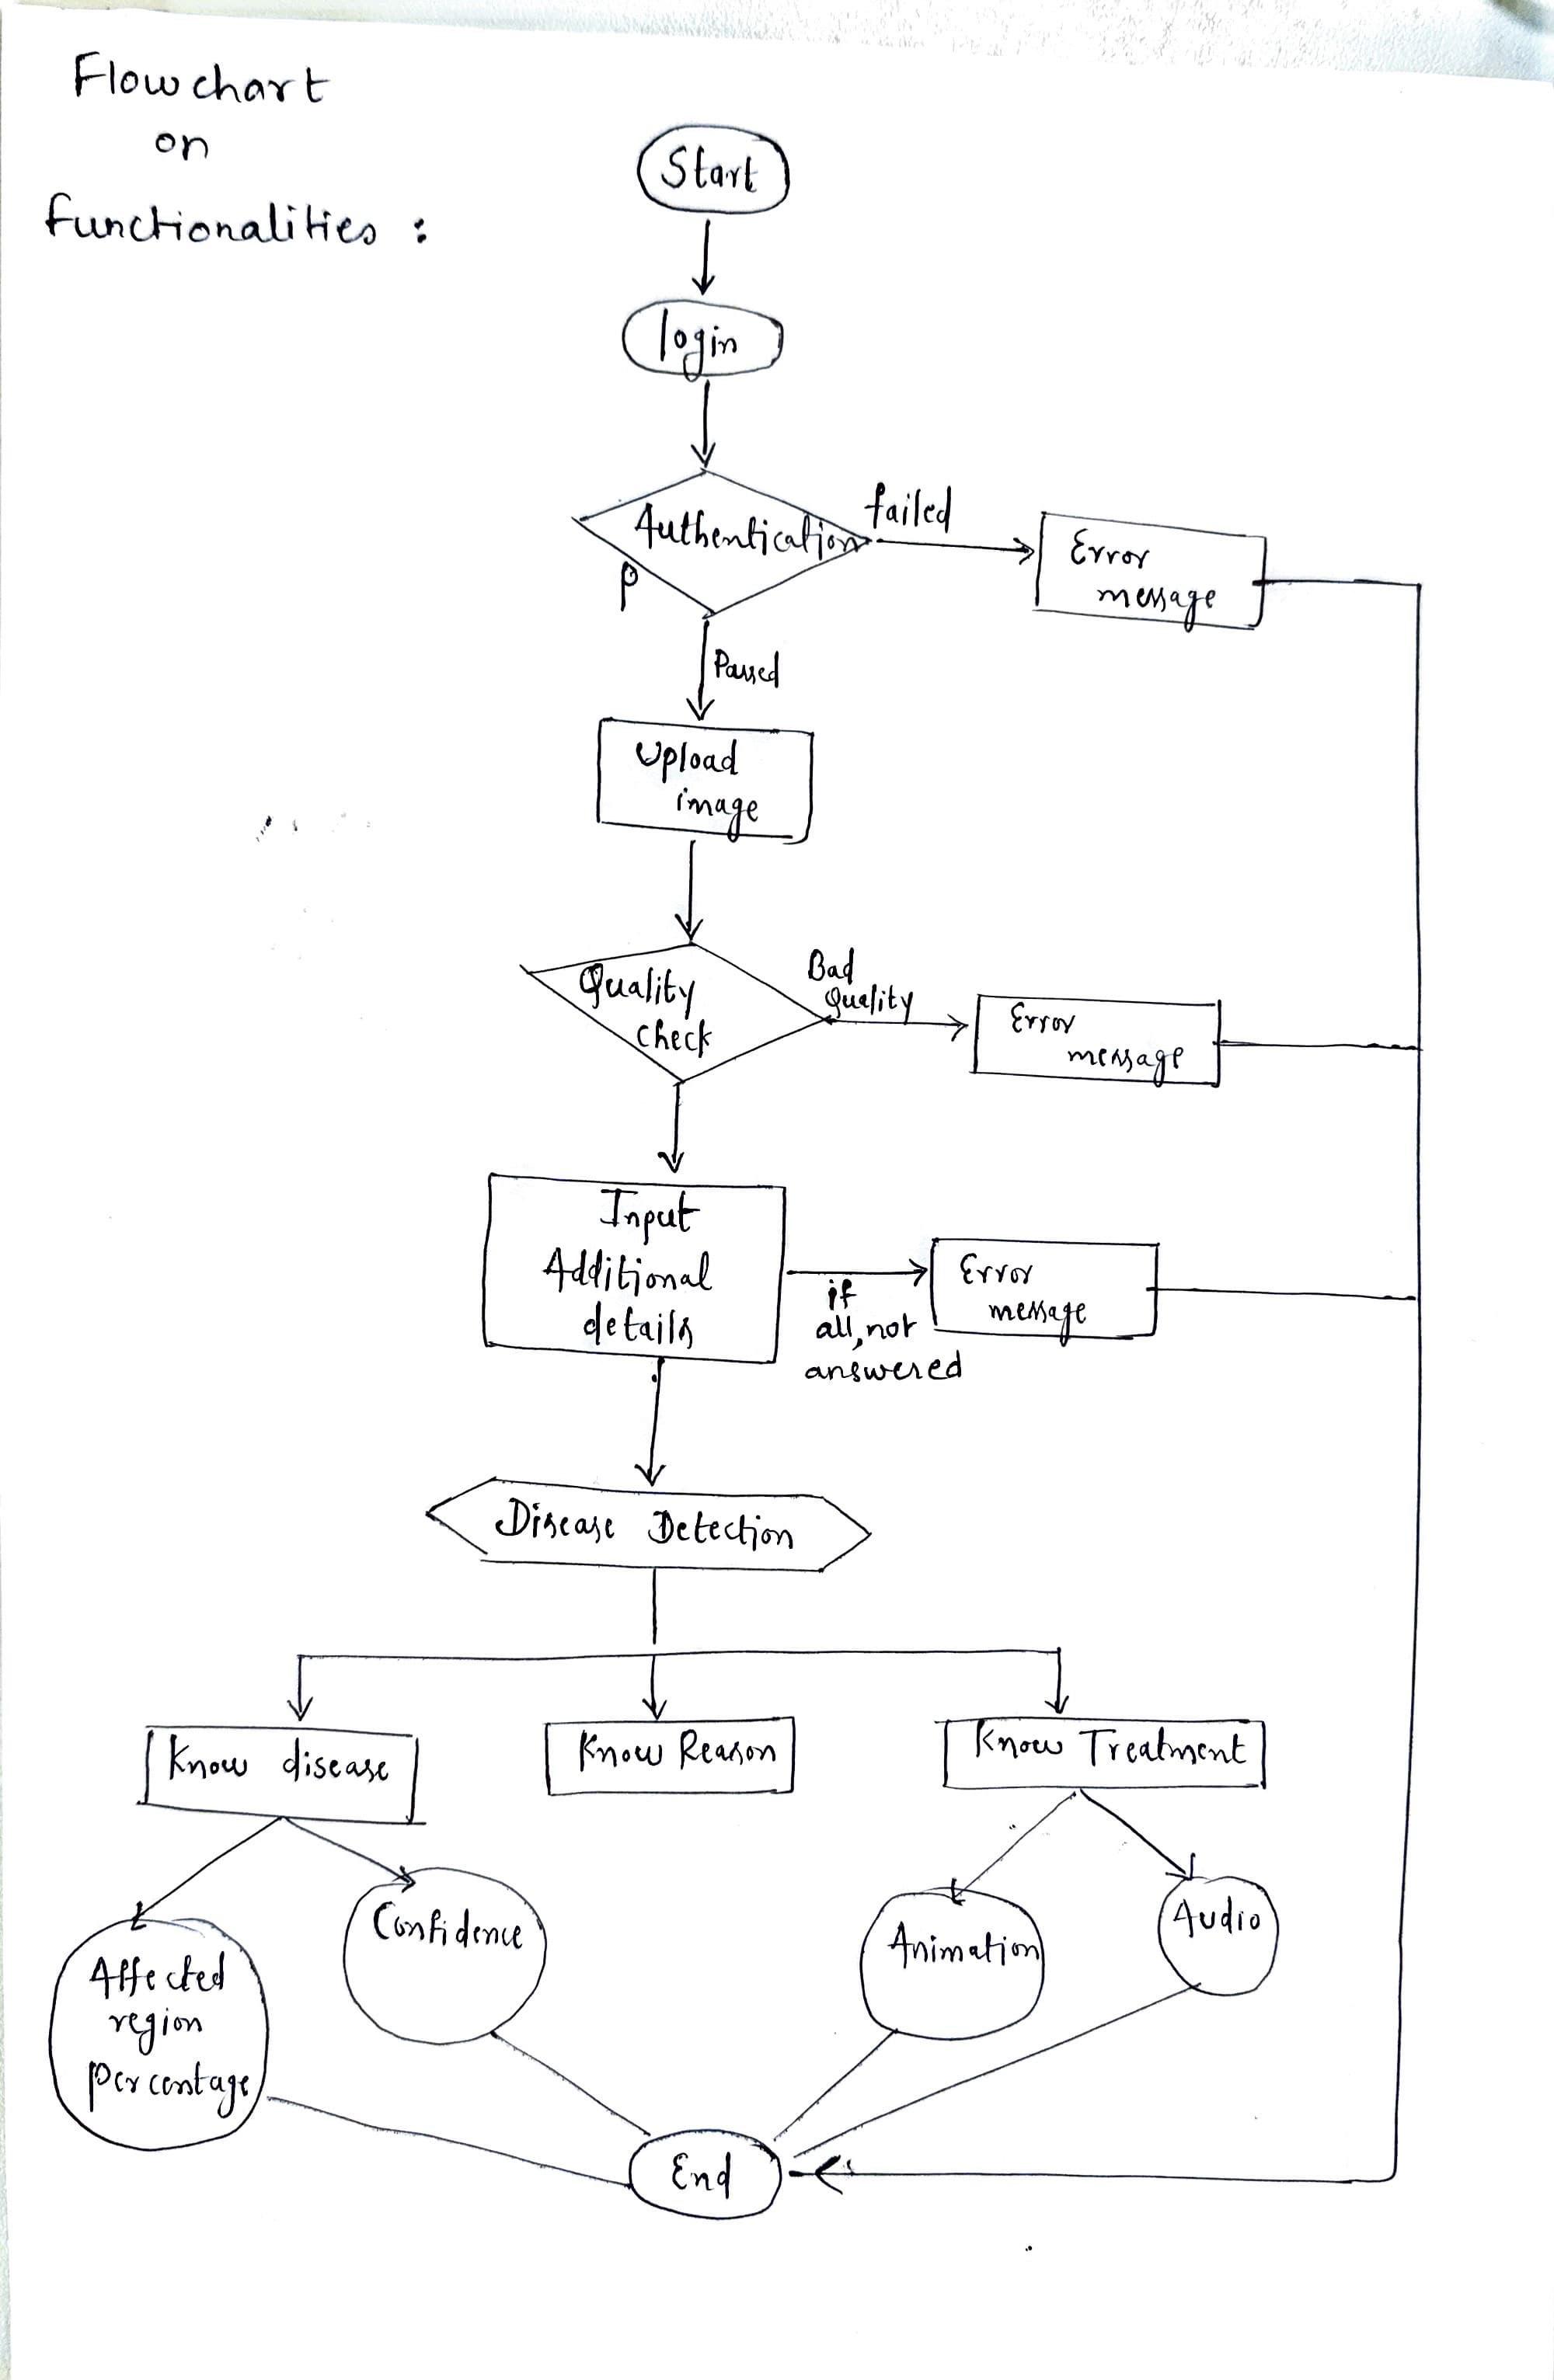 Flowchart
on
functionalities :
Start
login
Authentication
failed
Error
message
P
Passed
Upload
image
Quality
check
Bad
Quality
Error
message
Input
Additional
details
if
all, not
answered
Error
message
Disease Detection
Know disease
Know Reason
Know Treatment
Affected
region
percentage
Confidence
Animation
Audio
End